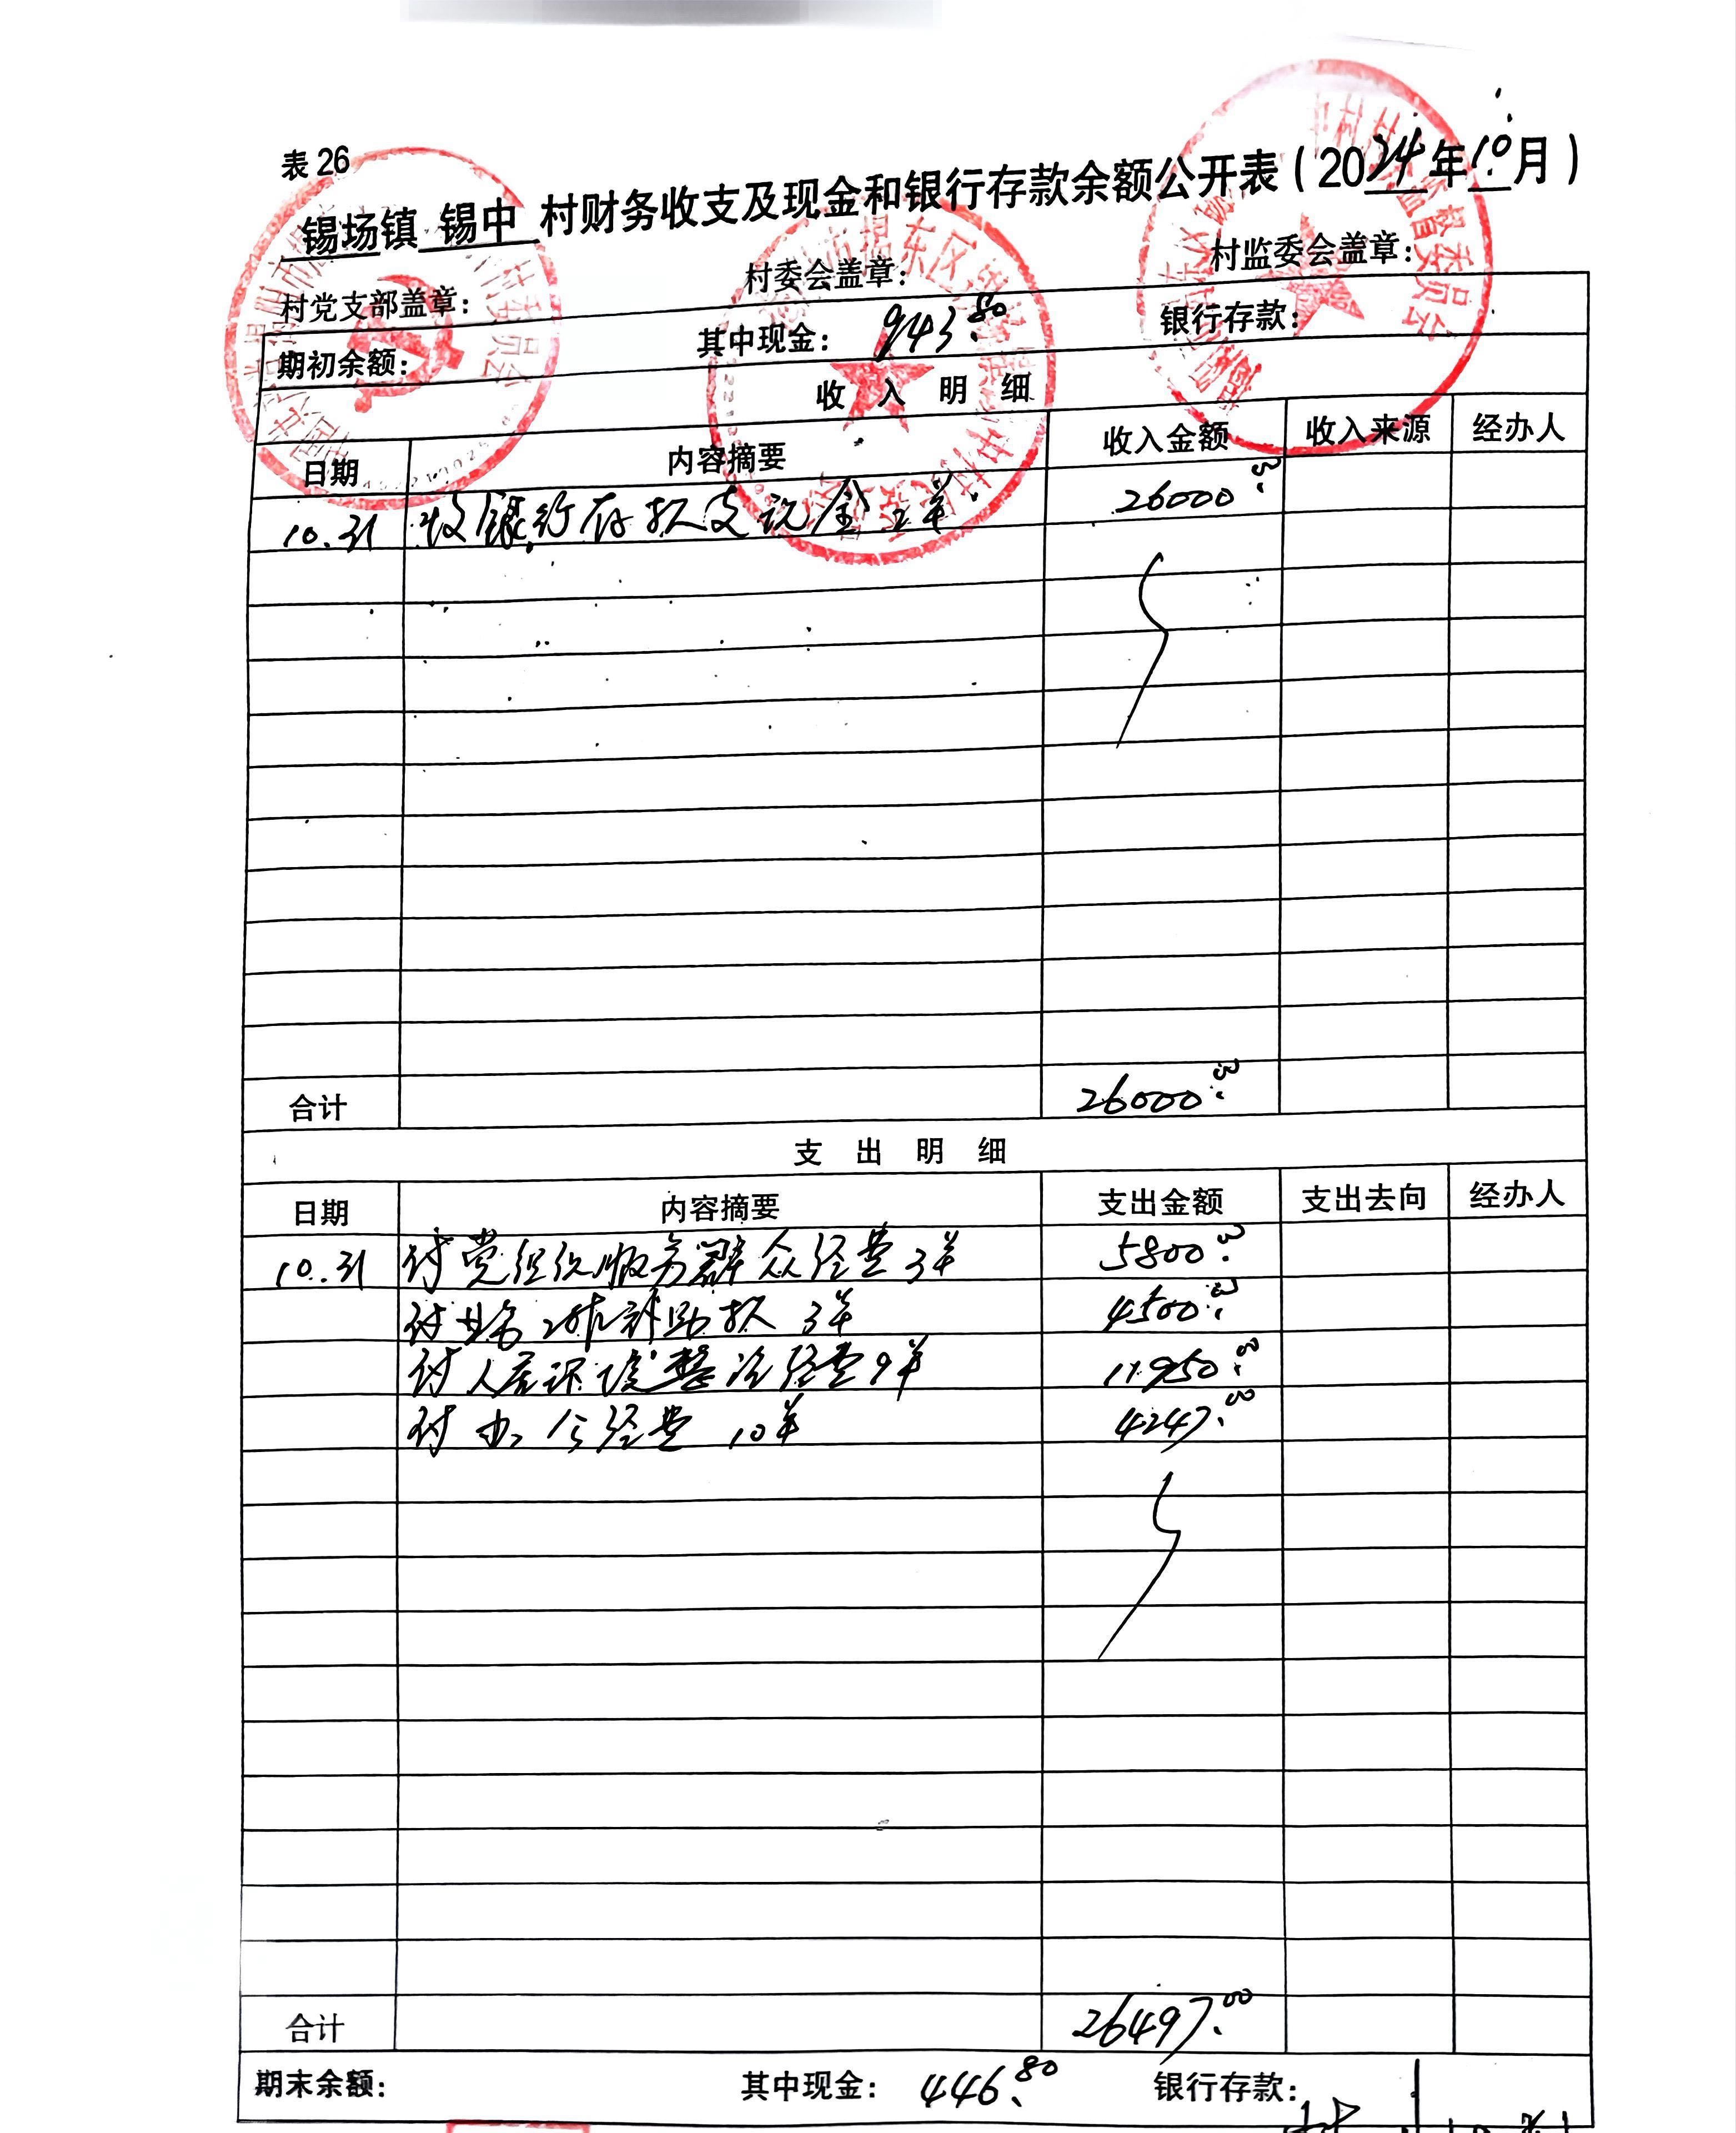 表 26
锡场镇 锡中 村财务收支及现金和银行存款余额公开表（2024年10月）
村党支部盖章： 村委会盖章： 村监委会盖章：
期初余额： 其中现金： 943.80 银行存款：
收 入 明 细
日期 内容摘要 收入金额 收入来源 经办人
10.31 收银行存款支现金2单 26000.00
合计 26000.00
支 出 明 细
日期 内容摘要 支出金额 支出去向 经办人
10.31 付党组织服务群众经费3单 5800.00
付 补助款 3单 4500.00
付人居环境整治经费9单 11950.00
付办公经费 10单 4247.00
合计 26497.00
期末余额： 其中现金： 446.80 银行存款：